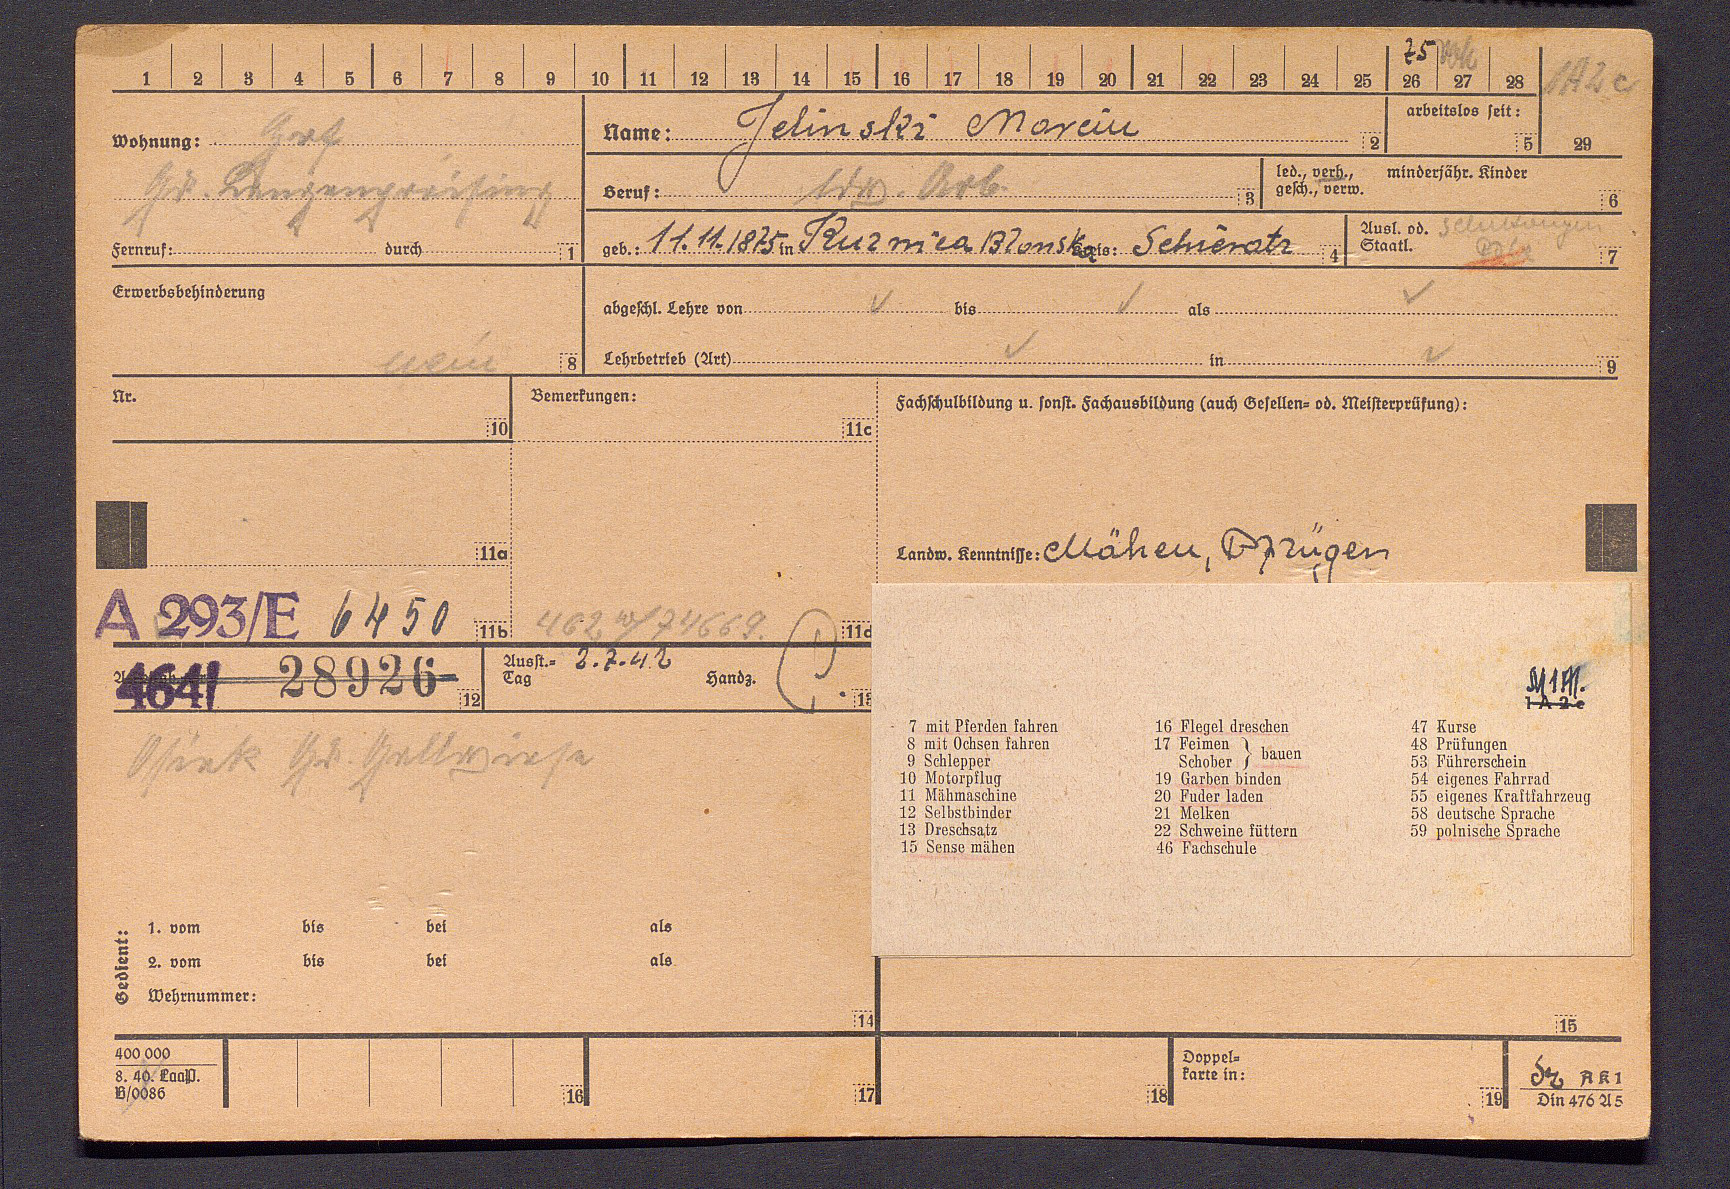 75
1 2 3 4 5 6 7 8 9 10 11 12 13 14 15 16 17 18 19 20 21 22 23 24 25 26 27 28 29
1A2c
Wohnung:
Name: Jelinski Marcin 2
arbeitslos seit: 5
Beruf: ldw. Arb. 3
led., verh., gesch., verw.
minderjähr. Kinder 6
Fernruf: durch 1
geb.: 11.11.1875 in Kuznica Blonska Kreis: Schieratz 4
Ausl. od. Staatl. 7
Erwerbsbehinderung
nein 8
abgeschl. Lehre von bis als
Lehrbetrieb (Art) in 9
Nr. 10
Bemerkungen: 11c
Fachschulbildung u. sonst. Fachausbildung (auch Gesellen- od. Meisterprüfung):
11a
Landw. Kenntnisse: Mähen, Pflügen
A 293/E 6450 11b
462 74669. 11d
464/ 28926 12
Ausst.-Tag 2.7.42 Handz. 13
1A2c
7 mit Pferden fahren
8 mit Ochsen fahren
9 Schlepper
10 Motorpflug
11 Mähmaschine
12 Selbstbinder
13 Dreschsatz
15 Sense mähen
16 Flegel dreschen
17 Feimen
Schober } bauen
19 Garben binden
20 Fuder laden
21 Melken
22 Schweine füttern
46 Fachschule
47 Kurse
48 Prüfungen
53 Führerschein
54 eigenes Fahrrad
55 eigenes Kraftfahrzeug
58 deutsche Sprache
59 polnische Sprache
Gedient:
1. vom bis bei als
2. vom bis bei als
Wehrnummer:
14
15
400 000
8. 40. Laaß.
B/0086
16
17
18
Doppel-
karte in:
19
AK1
Din 476 A5